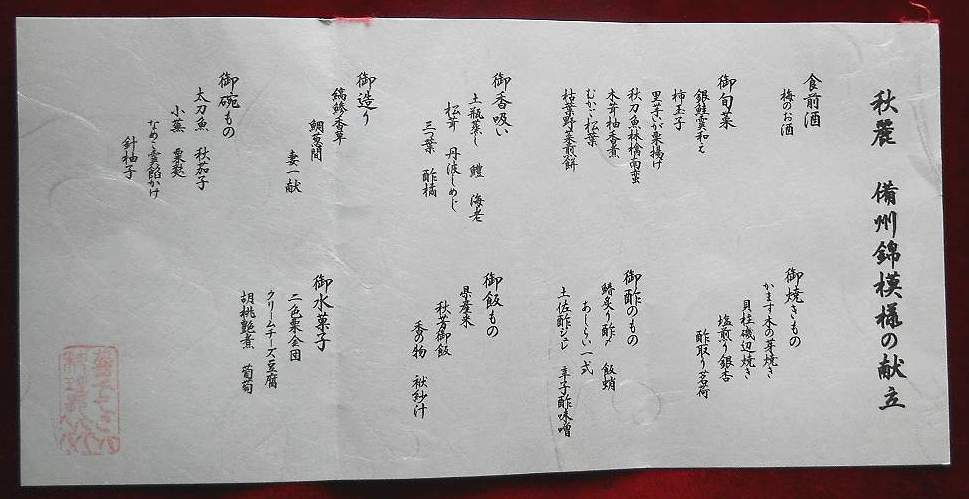 秋麗 備州錦模様の献立
食前酒
梅のお酒
御旬菜
銀鮭雲和え
柿玉子
里芋いが粟揚げ
秋刀魚林檎南蛮
木茸柚香煮
むかご松葉
枯葉野菜煎餅
御香吸い
土瓶蒸し 鱧 海老
松茸 丹波しめじ
三つ葉 酢橘
御造り
縞鯵香草
鯛葱間
妻一献
御碗もの
太刀魚 秋茄子
小蕪 粟麩
なめこ雲餡かけ
針柚子
御焼きもの
かます木の芽焼き
貝柱磯辺焼き
塩煎り銀杏
酢取り茗荷
御酢のもの
鰆炙り酢〆 飯蛸
あしらい一式
土佐酢ジュレ 辛子酢味噌
御飯もの
県産米
秋芳御飯
香の物 袱紗汁
御水菓子
二色栗金団
クリームチーズ豆腐
胡桃艶煮 葡萄